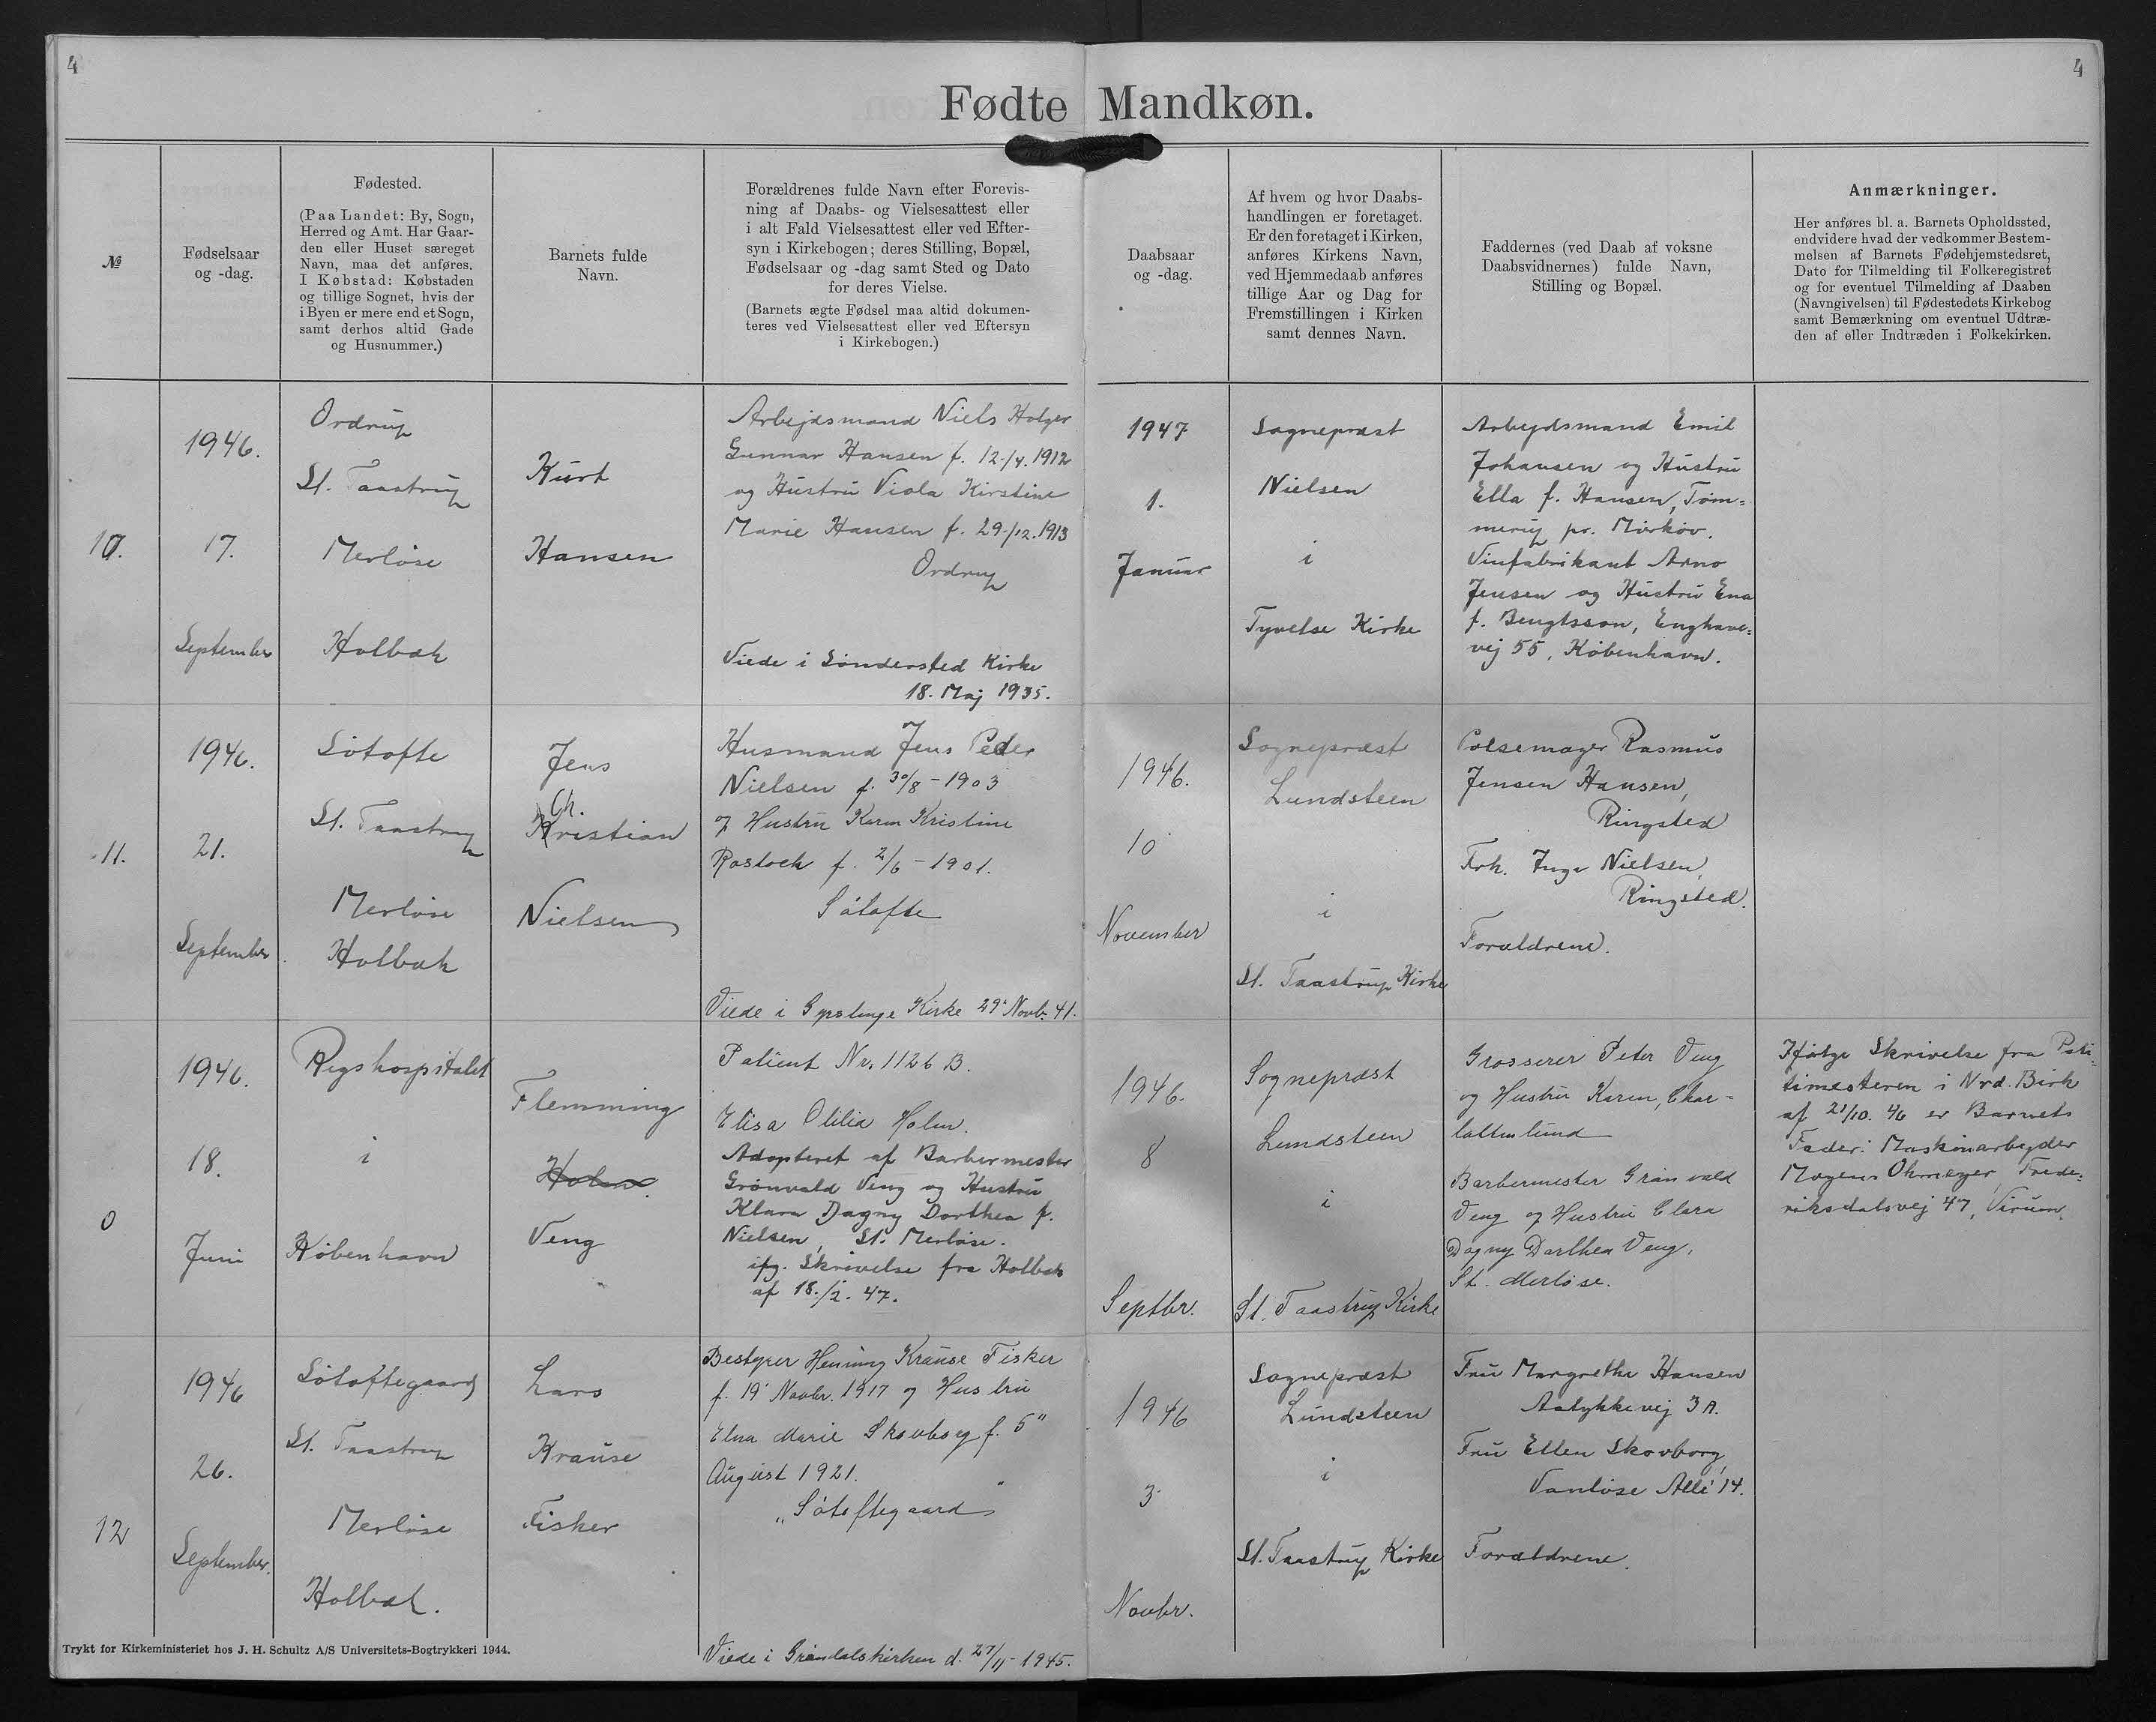 4
4
Fødte Mandkøn.
№
Fødselsaar
og -dag.
Fødested.
(Paa Landet: By, Sogn,
Herred og Amt. Har Gaar-
den eller Huset særeget
Navn, maa det anføres.
I Købstad: Købstaden
og tillige Sognet, hvis der
i Byen er mere end et Sogn,
samt derhos altid Gade
og Husnummer.)
Barnets fulde
Navn.
Forældrenes fulde Navn efter Forevis-
ning af Daabs- og Vielsesattest eller
i alt Fald Vielsesattest eller ved Efter-
syn i Kirkebogen; deres Stilling, Bopæl,
Fødselsaar og -dag samt Sted og Dato
for deres Vielse.
(Barnets ægte Fødsel maa altid dokumen-
teres ved Vielsesattest eller ved Eftersyn
i Kirkebogen.)
Daabsaar
og -dag.
Af hvem og hvor Daabs-
handlingen er foretaget.
Er den foretaget i Kirken,
anføres Kirkens Navn,
ved Hjemmedaab anføres
tillige Aar og Dag for
Fremstillingen i Kirken
samt dennes Navn.
Faddernes (ved Daab af voksne
Daabsvidnernes) fulde Navn,
Stilling og Bopæl.
Anmærkninger.
Her anføres bl. a. Barnets Opholdssted,
endvidere hvad der vedkommer Bestem-
melsen af Barnets Fødehjemstedsret,
Dato for Tilmelding til Folkeregistret
og for eventuel Tilmelding af Daaben
(Navngivelsen) til Fødestedets Kirkebog
samt Bemærkning om eventuel Udtræ-
den af eller Indtræden i Folkekirken.
10.
1946.
17.
September
Ordrup
St. Taastrup
Merløse
Holbæk
Kurt
Hansen
Arbejdsmand Niels Holger
Gunnar Hansen f. 12./4. 1912
og Hustru Viola Kirstine
Marie Hansen f. 29./12. 1913
Ordrup
Viede i Søndersted Kirke
18. Maj 1935.
1947
1.
Januar
Sognepræst
Nielsen
i
Tyvelse Kirke
Arbejdsmand Emil
Johansen og Hustru
Ella f. Hansen, Tøm-
merup pr. Mørkøv.
Vinfabrikant Arno
Jensen og Hustru Ena
f. Bengtsson, Enghave-
vej 55, København.
11.
1946.
21.
September
Søtofte
St. Taastrup
Merløse
Holbæk
Jens
Ch.
Kristian
Nielsen
Husmand Jens Peder
Nielsen f. 30/8 - 1903
og Hustru Karen Kristine
Rostock f. 2/6 - 1901.
Søtofte
Viede i Gyrstinge Kirke 29' Novb. 41.
1946.
10
November
Sognepræst
Lundsteen
i
St. Taastrup Kirke
Pølsemager Rasmus
Jensen Hansen,
Ringsted
Frk. Inge Nielsen,
Ringsted.
Forældrene.
0
1946.
18.
Juni
Rigshospitalet
i
København
Flemming
Holm.
Veng
Patient Nr. 1126 B.
Elisa Otilia Holm.
Adopteret af Barbermester
Grønvald Veng og Hustru
Klara Dagny Dorthea f.
Nielsen, St. Merløse.
ifg. Skrivelse fra Holbæk
af 18./2. 47.
1946.
8
Septbr.
Sognepræst
Lundsteen
i
St. Taastrup Kirke
Grosserer Peter Veng
og Hustru Karen, Char-
lottenlund
Barbermester Grønvald
Veng og Hustru Clara
Dagny Dorthea Veng,
St. Merløse.
Ifølge Skrivelse fra Poli-
timesteren i Nrd. Birk
af 21/10. 46 er Barnets
Fader: Maskinarbejder
Mogens Ohmeyer, Frede-
riksdalsvej 47, Virum.
12
1946
26.
September.
Søtoftegaard
St. Taastrup
Merløse
Holbæk.
Lars
Krause
Fisker
Bestyrer Henning Krause Fisker
f. 19' Novbr. 1917 og Hustru
Elna Marie Skovborg f. 5"
August 1921.
"Søtoftegaard"
Viede i Grøndalskirken d. 27/11 1945.
1946
3
Novbr.
Sognepræst
Lundsteen
i
St. Taastrup Kirke
Fru Margrethe Hansen
Aalykkevej 3 A.
Fru Ellen Skovborg,
Vanløse Allé 14.
Forældrene.
Trykt for Kirkeministeriet hos J. H. Schultz A/S Universitets-Bogtrykkeri 1944.